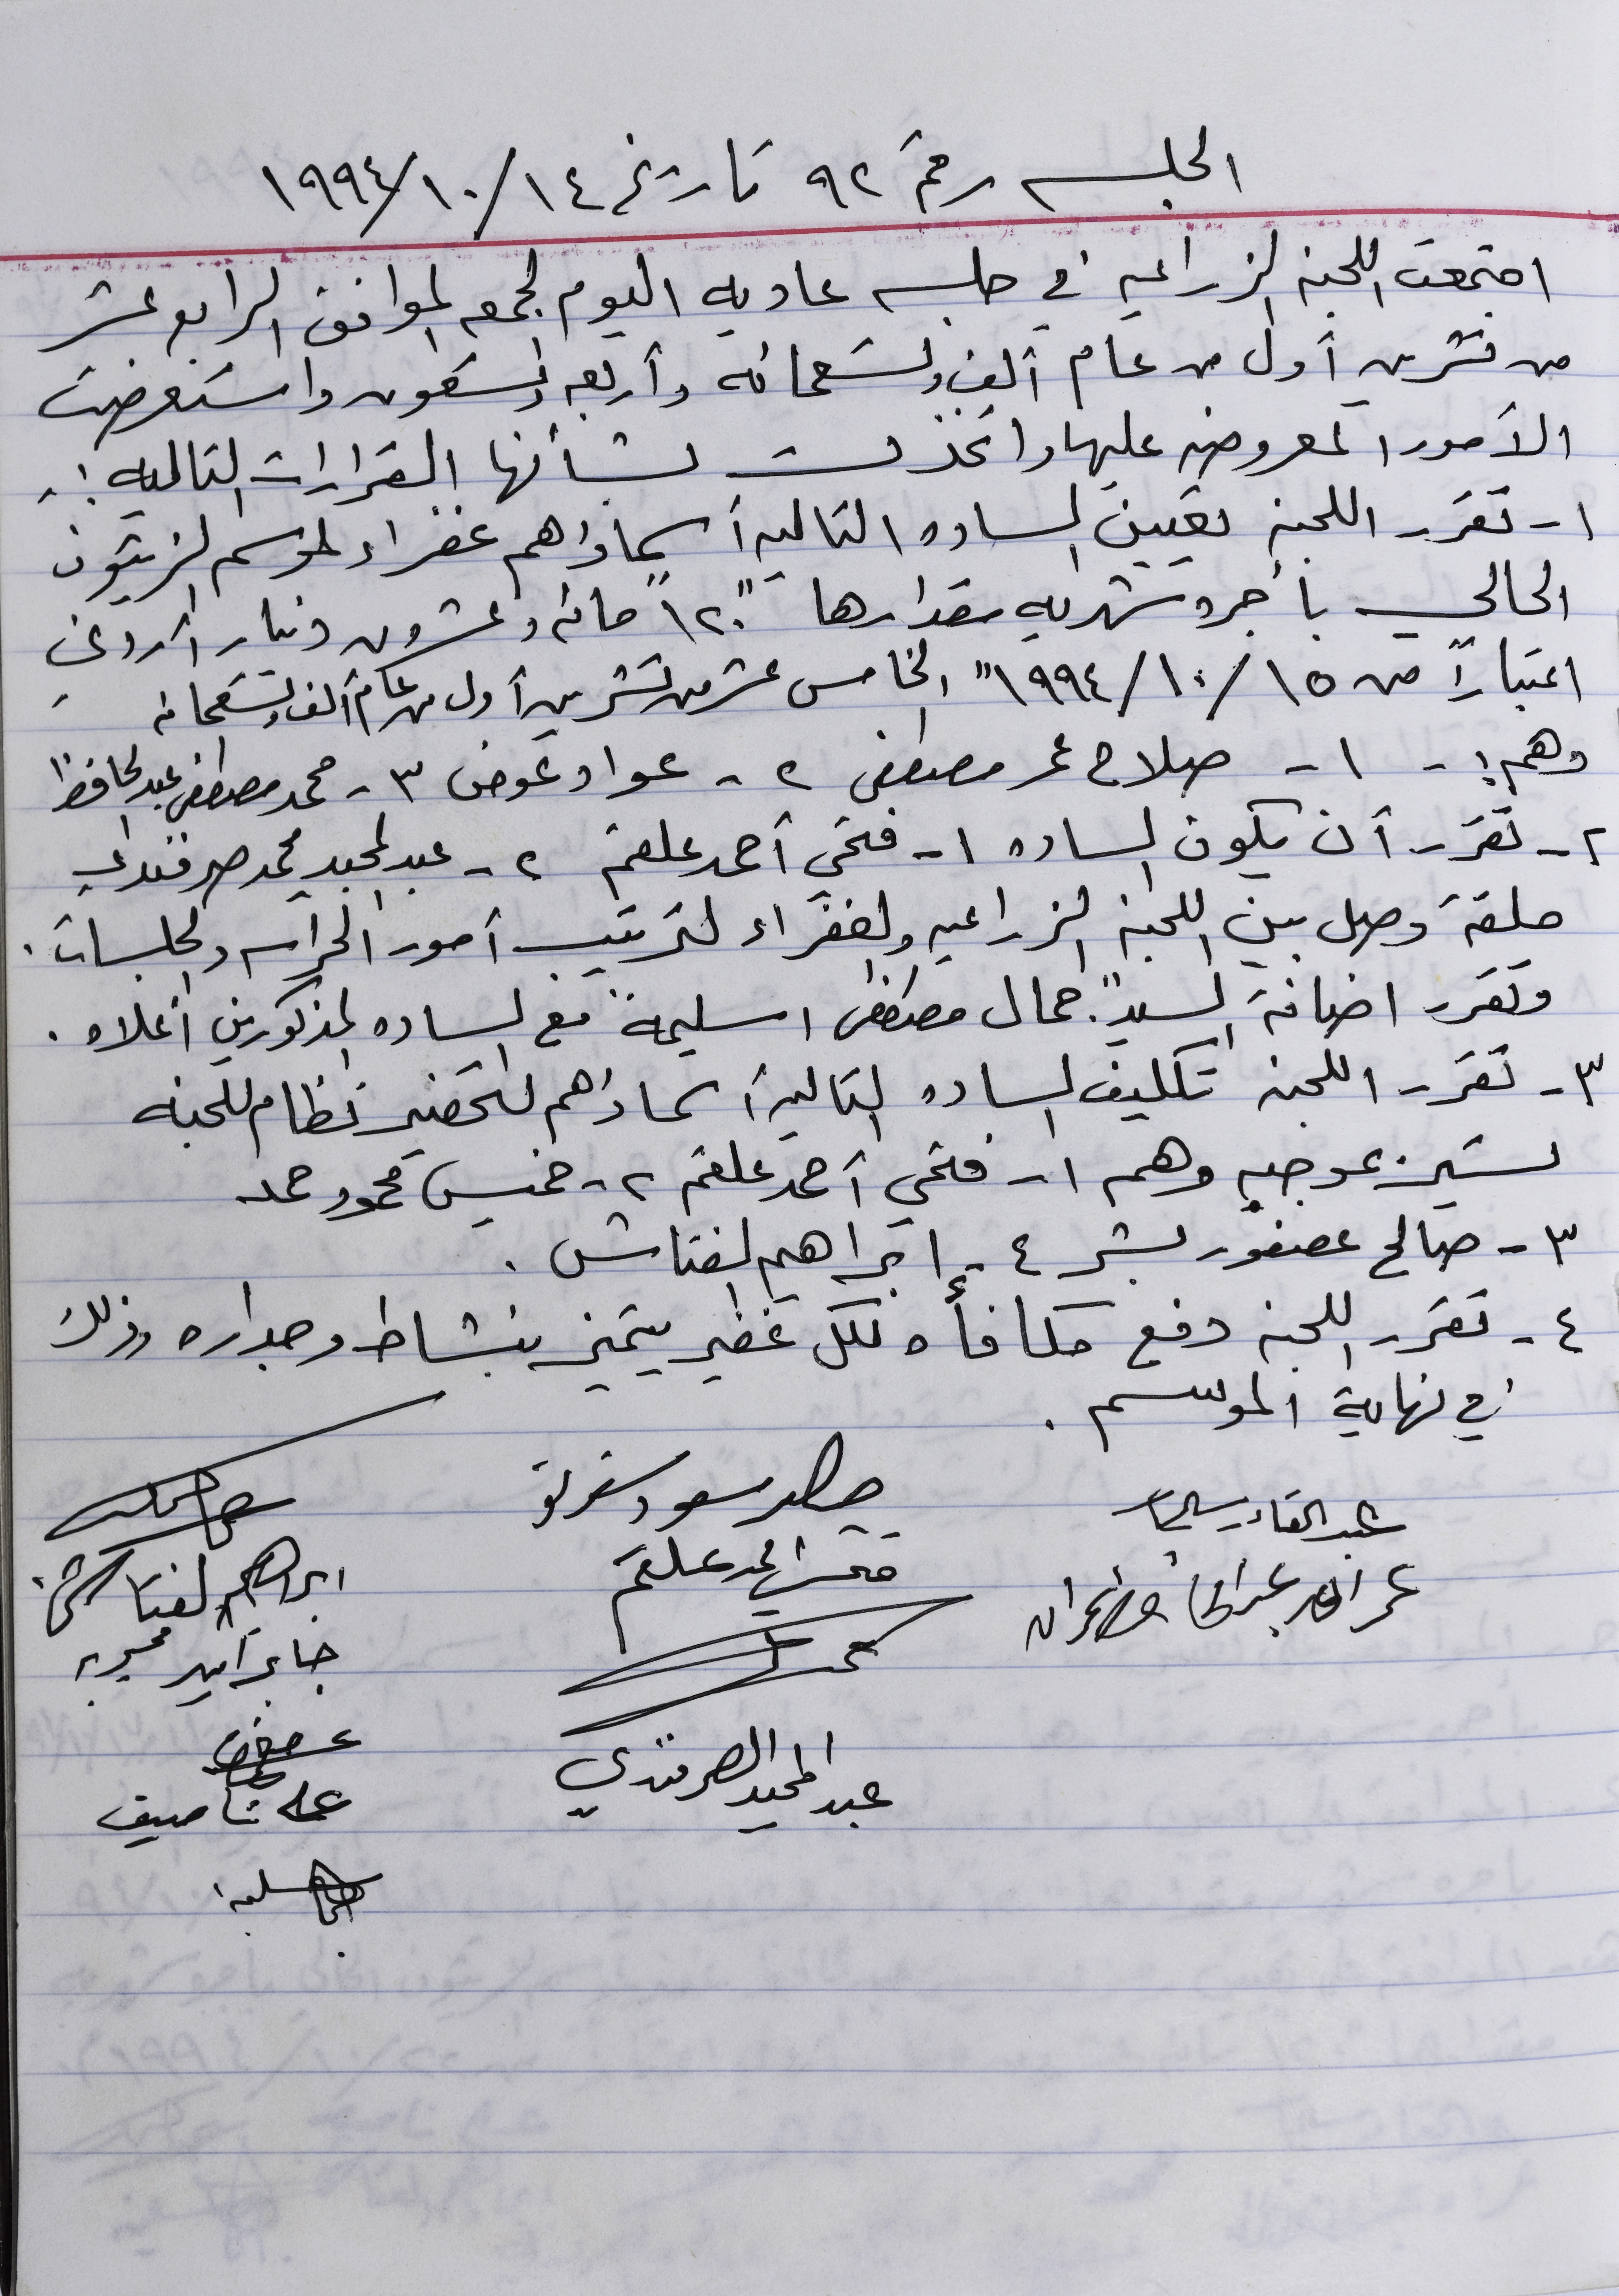 الجلسه رقم ٩٢ تاريخ ١٩٩٤/١٠/١٤
اجتمعت اللجنه الزراعيه في جلسه عاديه اليوم الجمعه الموافق الرابع عشر
من تشرين أول من عام ألف وتسعمائه وأربعه وتسعون واستعرضت
الأمور المعروضه عليها واتخذت بشأنها القرارات التاليه :-
١- تقرر اللجنه تعيين الساده التاليه أسماؤهم غفراء لموسم الزيتون
الحالي بأجره شهريه مقدارها "١٢٠" مائه وعشرون دينار أردني
اعتباراً من ١٩٩٤/١٠/١٥" الخامس عشر من تشرين أول من عام ألف وتسعمائه
وهم :- ١- صلاح عمر مصطفى ٢- عواد عوض ٣- محمد مصطفى عبد الحافظ
٢- تقرر أن يكون الساده ١- فتحي أحمد علقم ٢- عبد المجيد محمد صرفندي
حلقة وصل بين اللجنه الزراعيه والغفراء لترتيب أمور الحراسه والجلسات .
وتقرر اضافة السيد" جمال مصطفى اسليمة" مع الساده المذكورين أعلاه .
٣- تقرر اللجنه تكليف الساده التاليه أسماؤهم لتحضير نظام للجنه
لتسير بموجبه وهم ١- فتحي أحمد علقم ٢- خميس محمود حمد
٣- صالح عصفور بشر ٤- ابراهيم الفتاش .
٤- تقرر اللجنه دفع مكافأه لكل غفير يتميز بنشاط وجداره وذلك
في نهاية الموسم .
فتحي احمد علقم
ابراهيم الفتاش
عبد المجيد الصرفندي
علي ناصيف